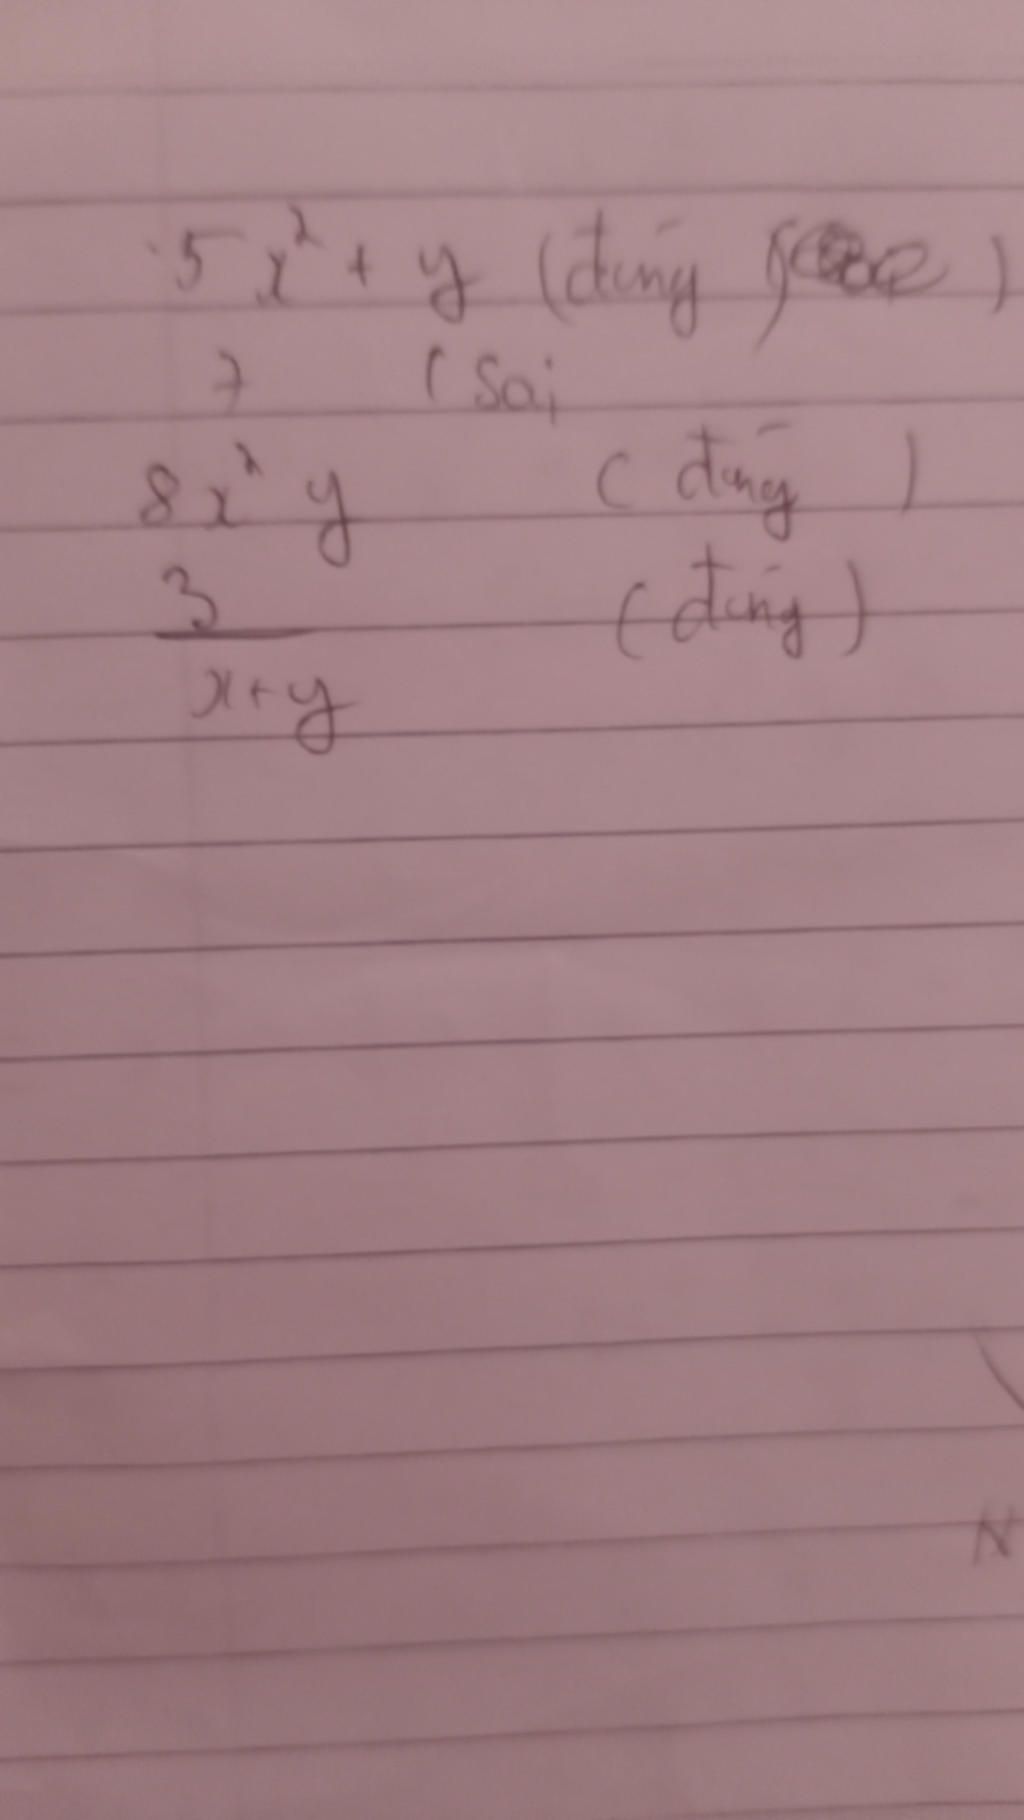 5x² + y (đúng )
7 (Sai
8x² y ( đúng )
3 ( đúng )
x+y
N